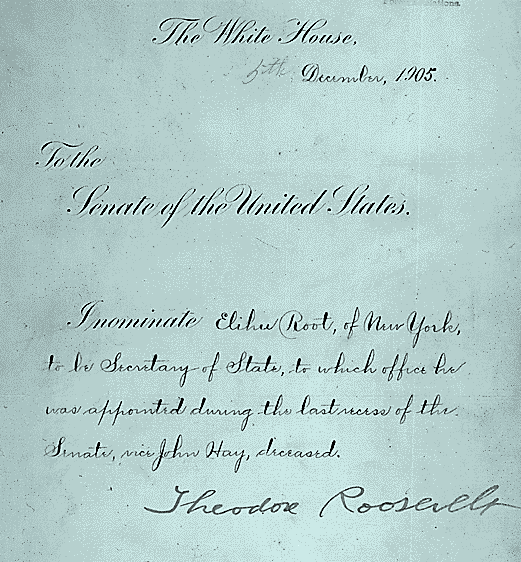 The White House,
6th December, 1905.
To the
Senate of the United States.
I nominate Elihu Root, of New York,
to be Secretary of State, to which office he
was appointed during the last recess of the
Senate, vice John Hay, deceased.
Theodore Roosevelt